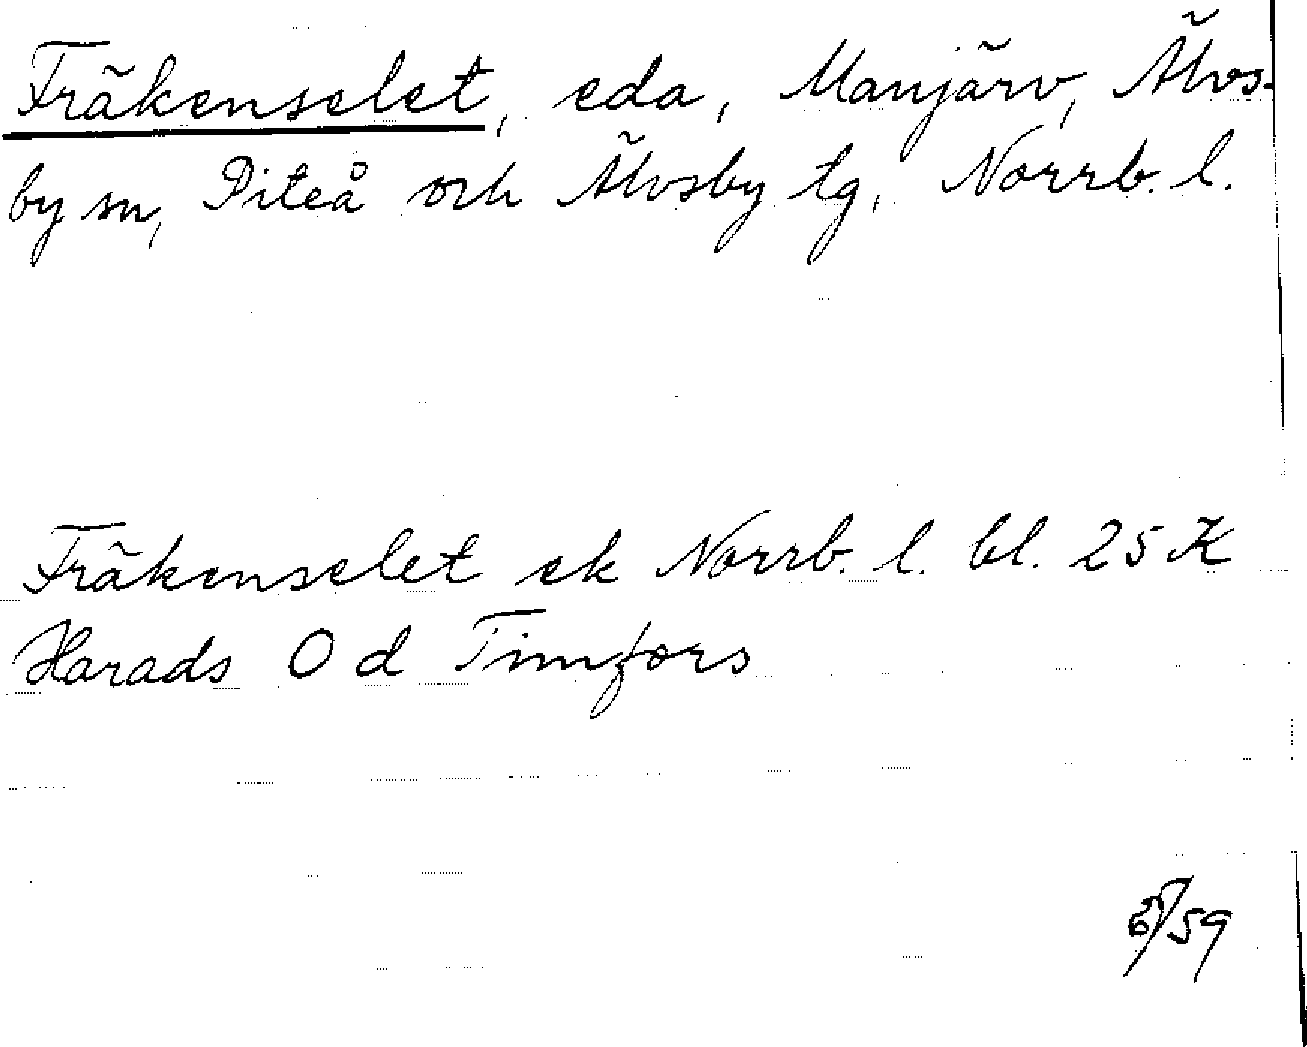 Fräkenselet, eda, Manjärv, Älvs-
by sn, Piteå och Älvsby tg, Norrb. l.
Fräkenselet ek Norrb. l. bl. 25 K
Harads O d Timfors
/59